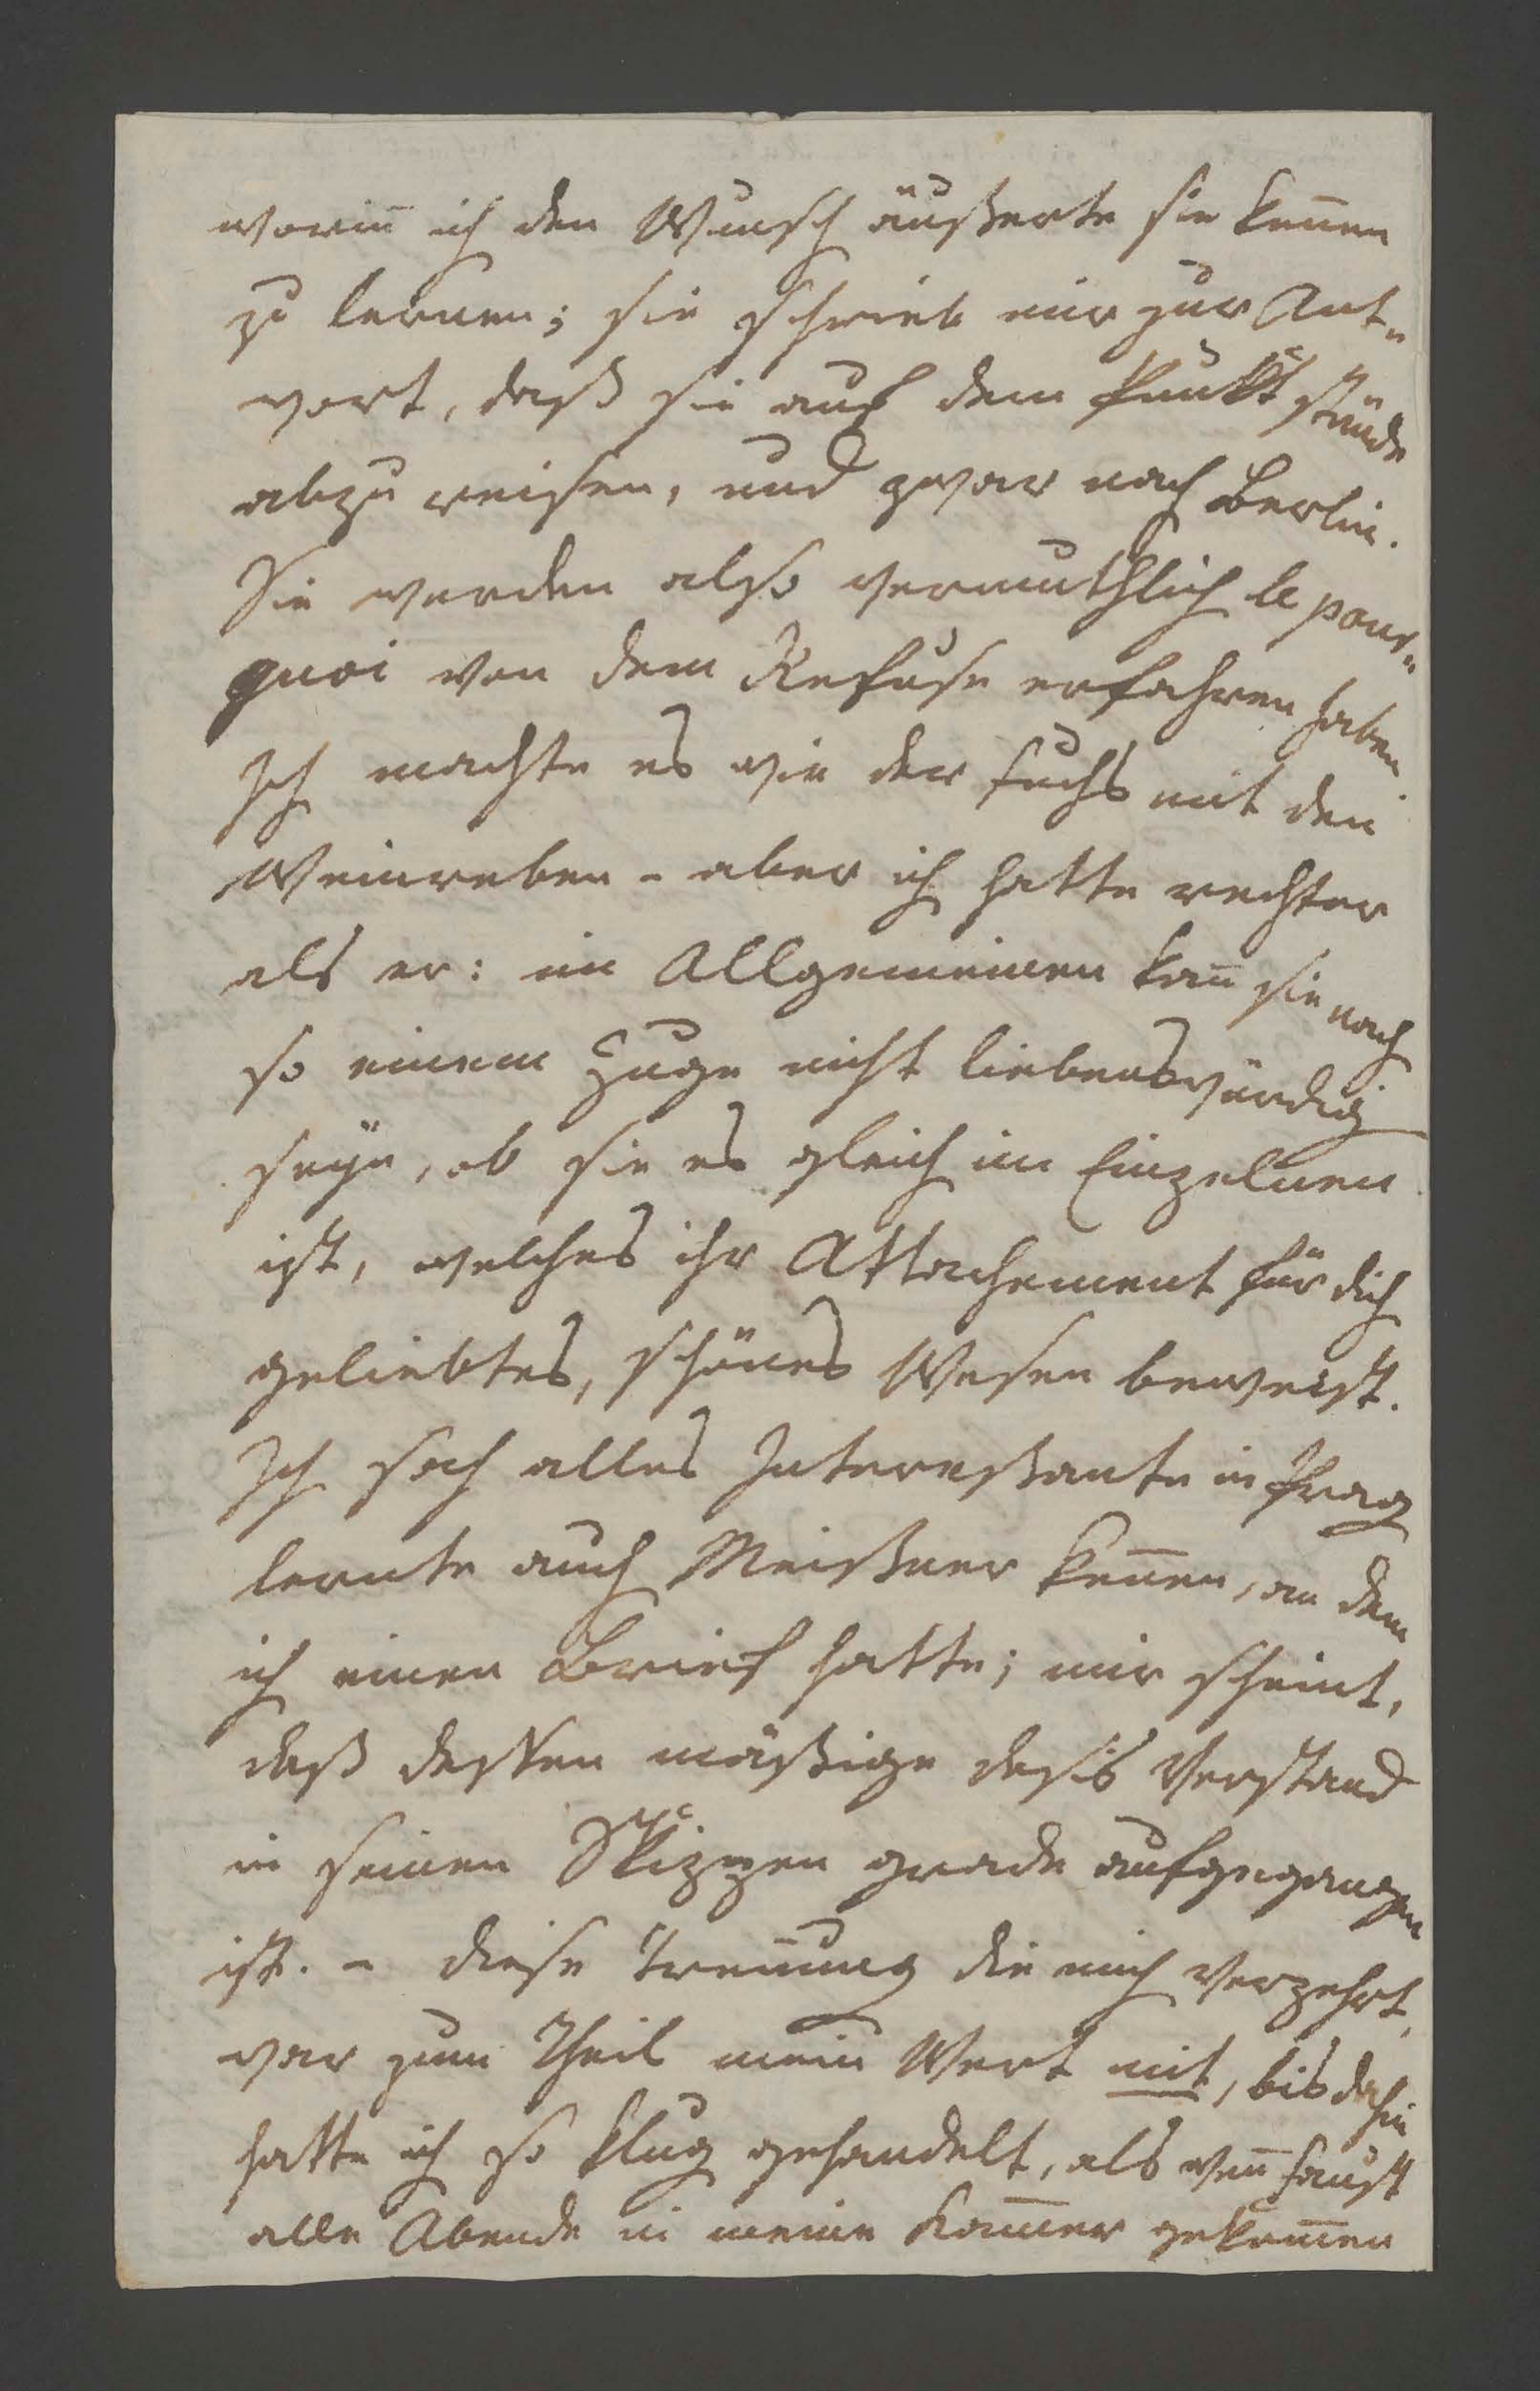 worin̅ ich den Wunsch äußerte sie ken̅en
zu lernen; sie schrieb mir zur Ant„
wort, daß sie auf dem Punkt stünde
abzu reisen, und zwar nach Berlin.
Sie werden also vermuthlich le pour„
quoi von dem Refuse erfahren haben.
Ich machte es wie der Fuchs mit den
Weinreben - aber ich hatte rechter
als er: im Allgemeinen kan̅ sie nach
so einem Zuge nicht liebenswürdig
seÿn, ob sie es gleich im Einzelnen
ist, welches ihr Attachement für dich
geliebtes, schönes Wesen beweist.
Ich sah alles Intereßante in Prag
lernte auch Meißner ken̅en, an dem
ich einen Brief hatte; mir scheint,
daß deßen mäßige Verstand
in seinen Skizzen grade aufgegangen
ist. - diese Tren̅ung die mich verzehrt,
war zum Theil mein Werk mit, bis dahin
hatte ich so klug gehandelt, als wen̅ Faust
alle Abende in meine Kam̅er gekom̅en